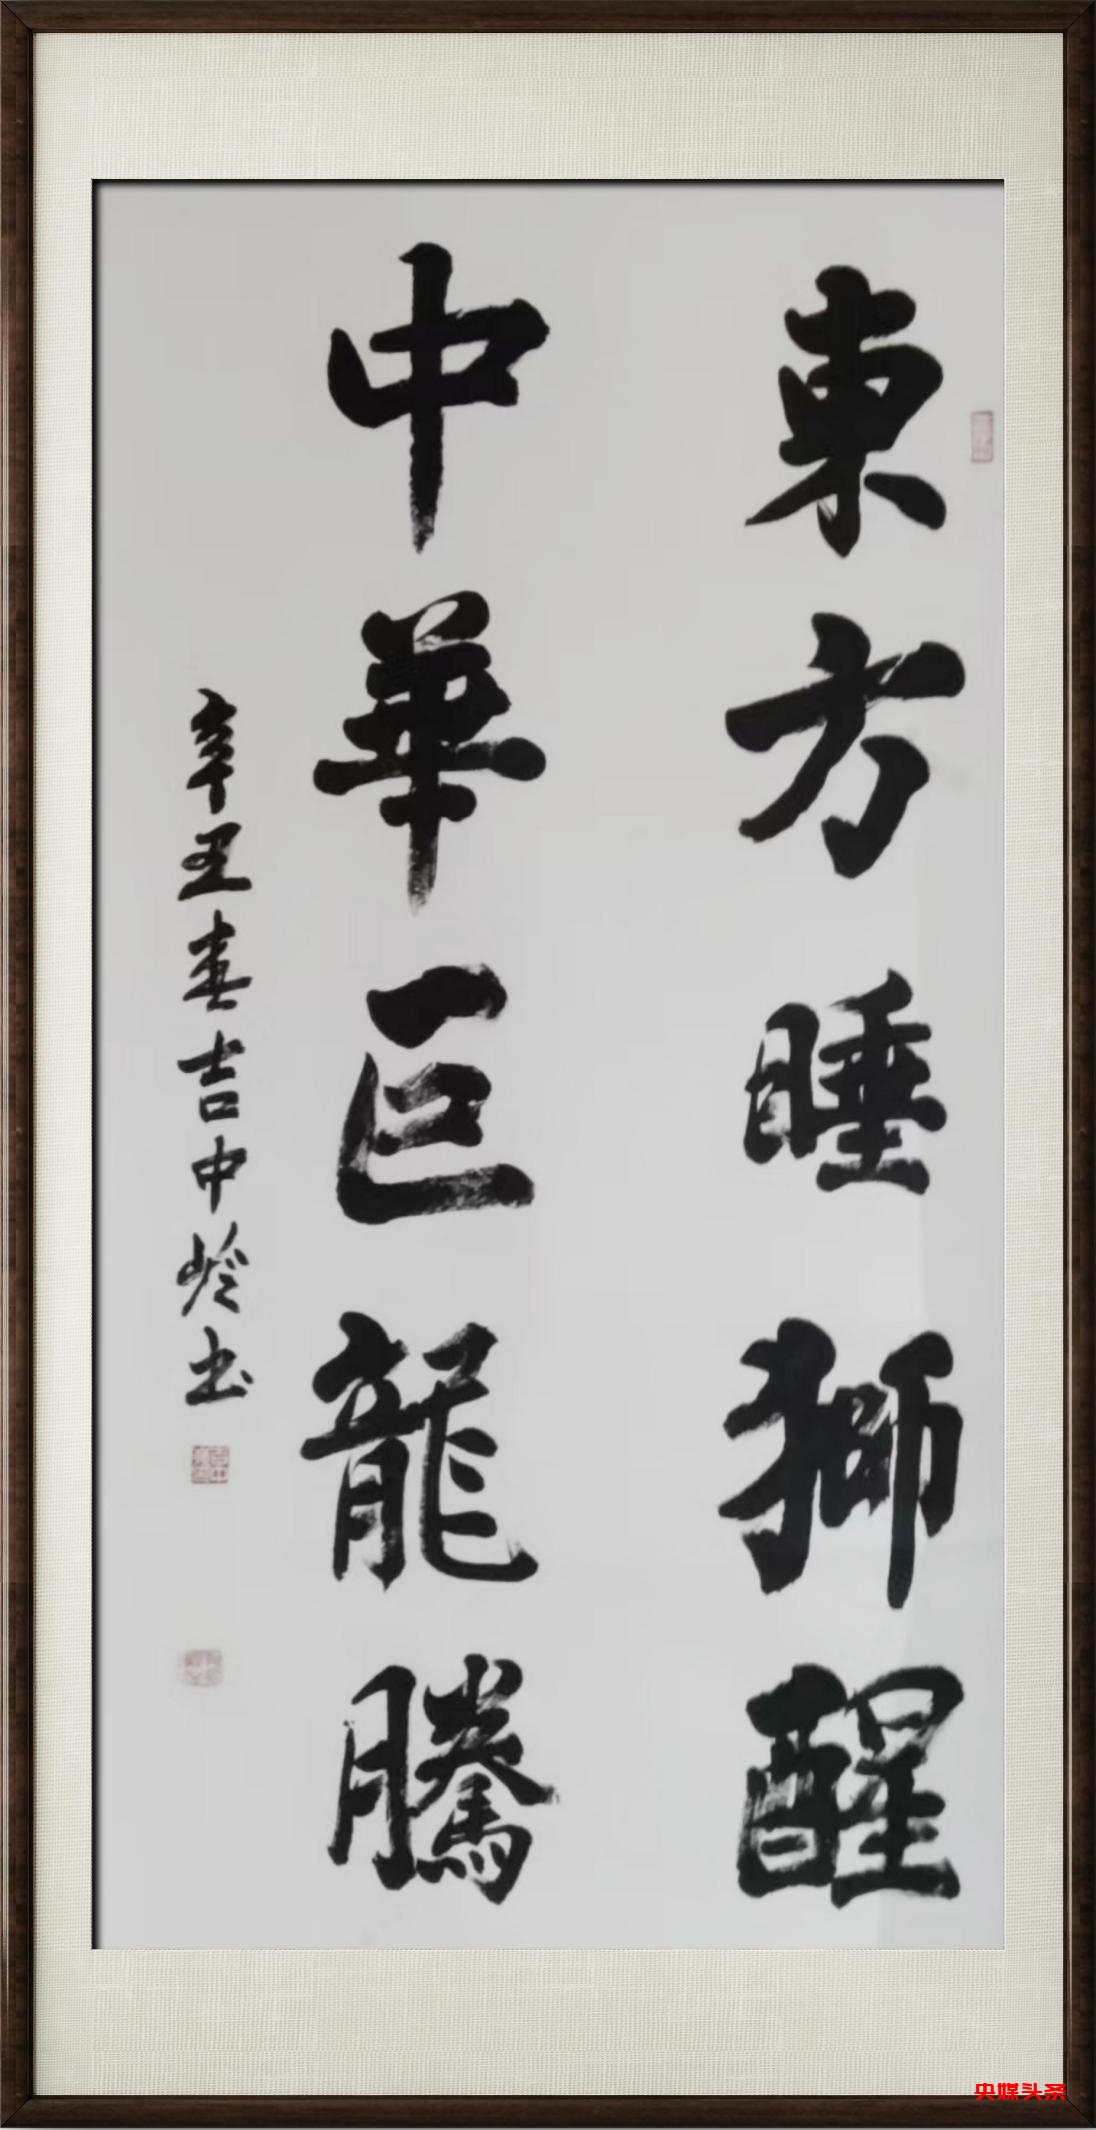 東方睡獅醒
中華巨龍騰
辛丑春吉中岭书
央媒头条